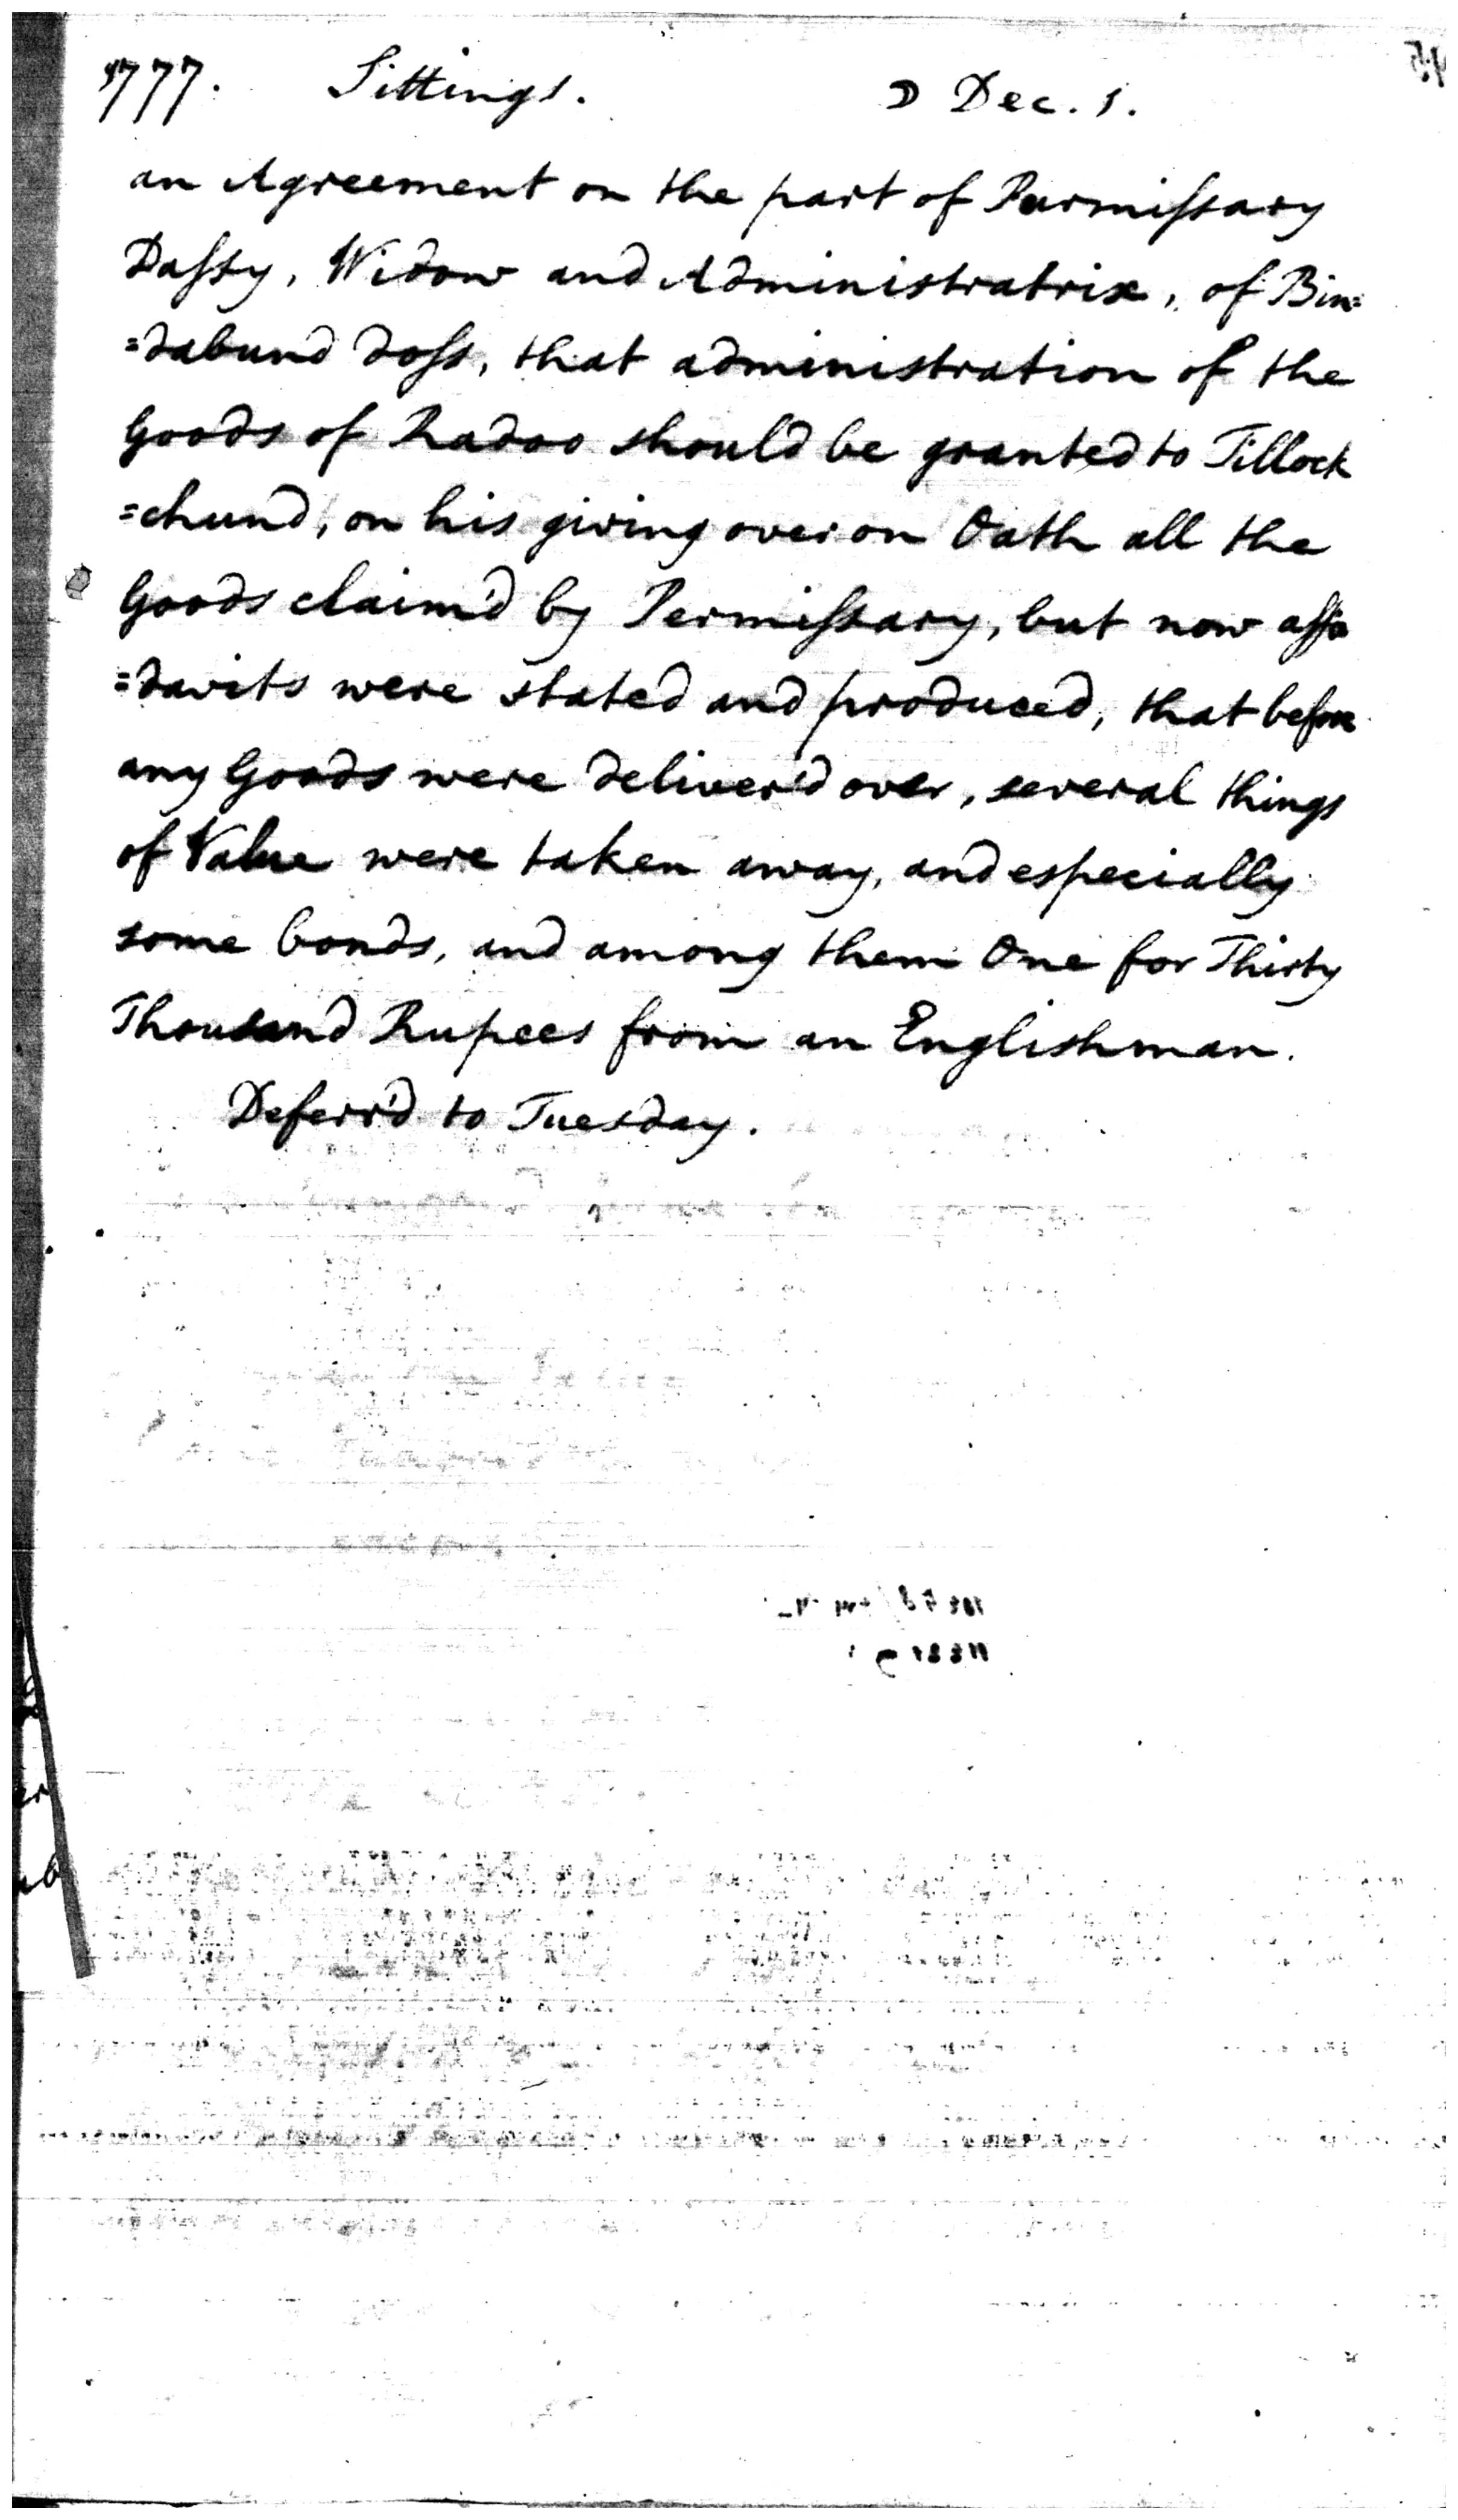 1777. Sittings. ☽ Dec. 1.
an Agreement on the part of Purmiſsary
Daſsy, Widow and Administratrix, of Bin=
=dabund doſs, that administration of the
Goods of Radoo should be granted to Tillock
=chund, on his giving over on Oath all the
Goods claim'd by Permiſsary, but now affi
=davits were stated and produced, that before
any Goods were deliver'd over, several things
of Value were taken away, and especially
some bonds, and among them One for Thirty
Thousand Rupees from an Englishman.
Deferr'd to Tuesday.